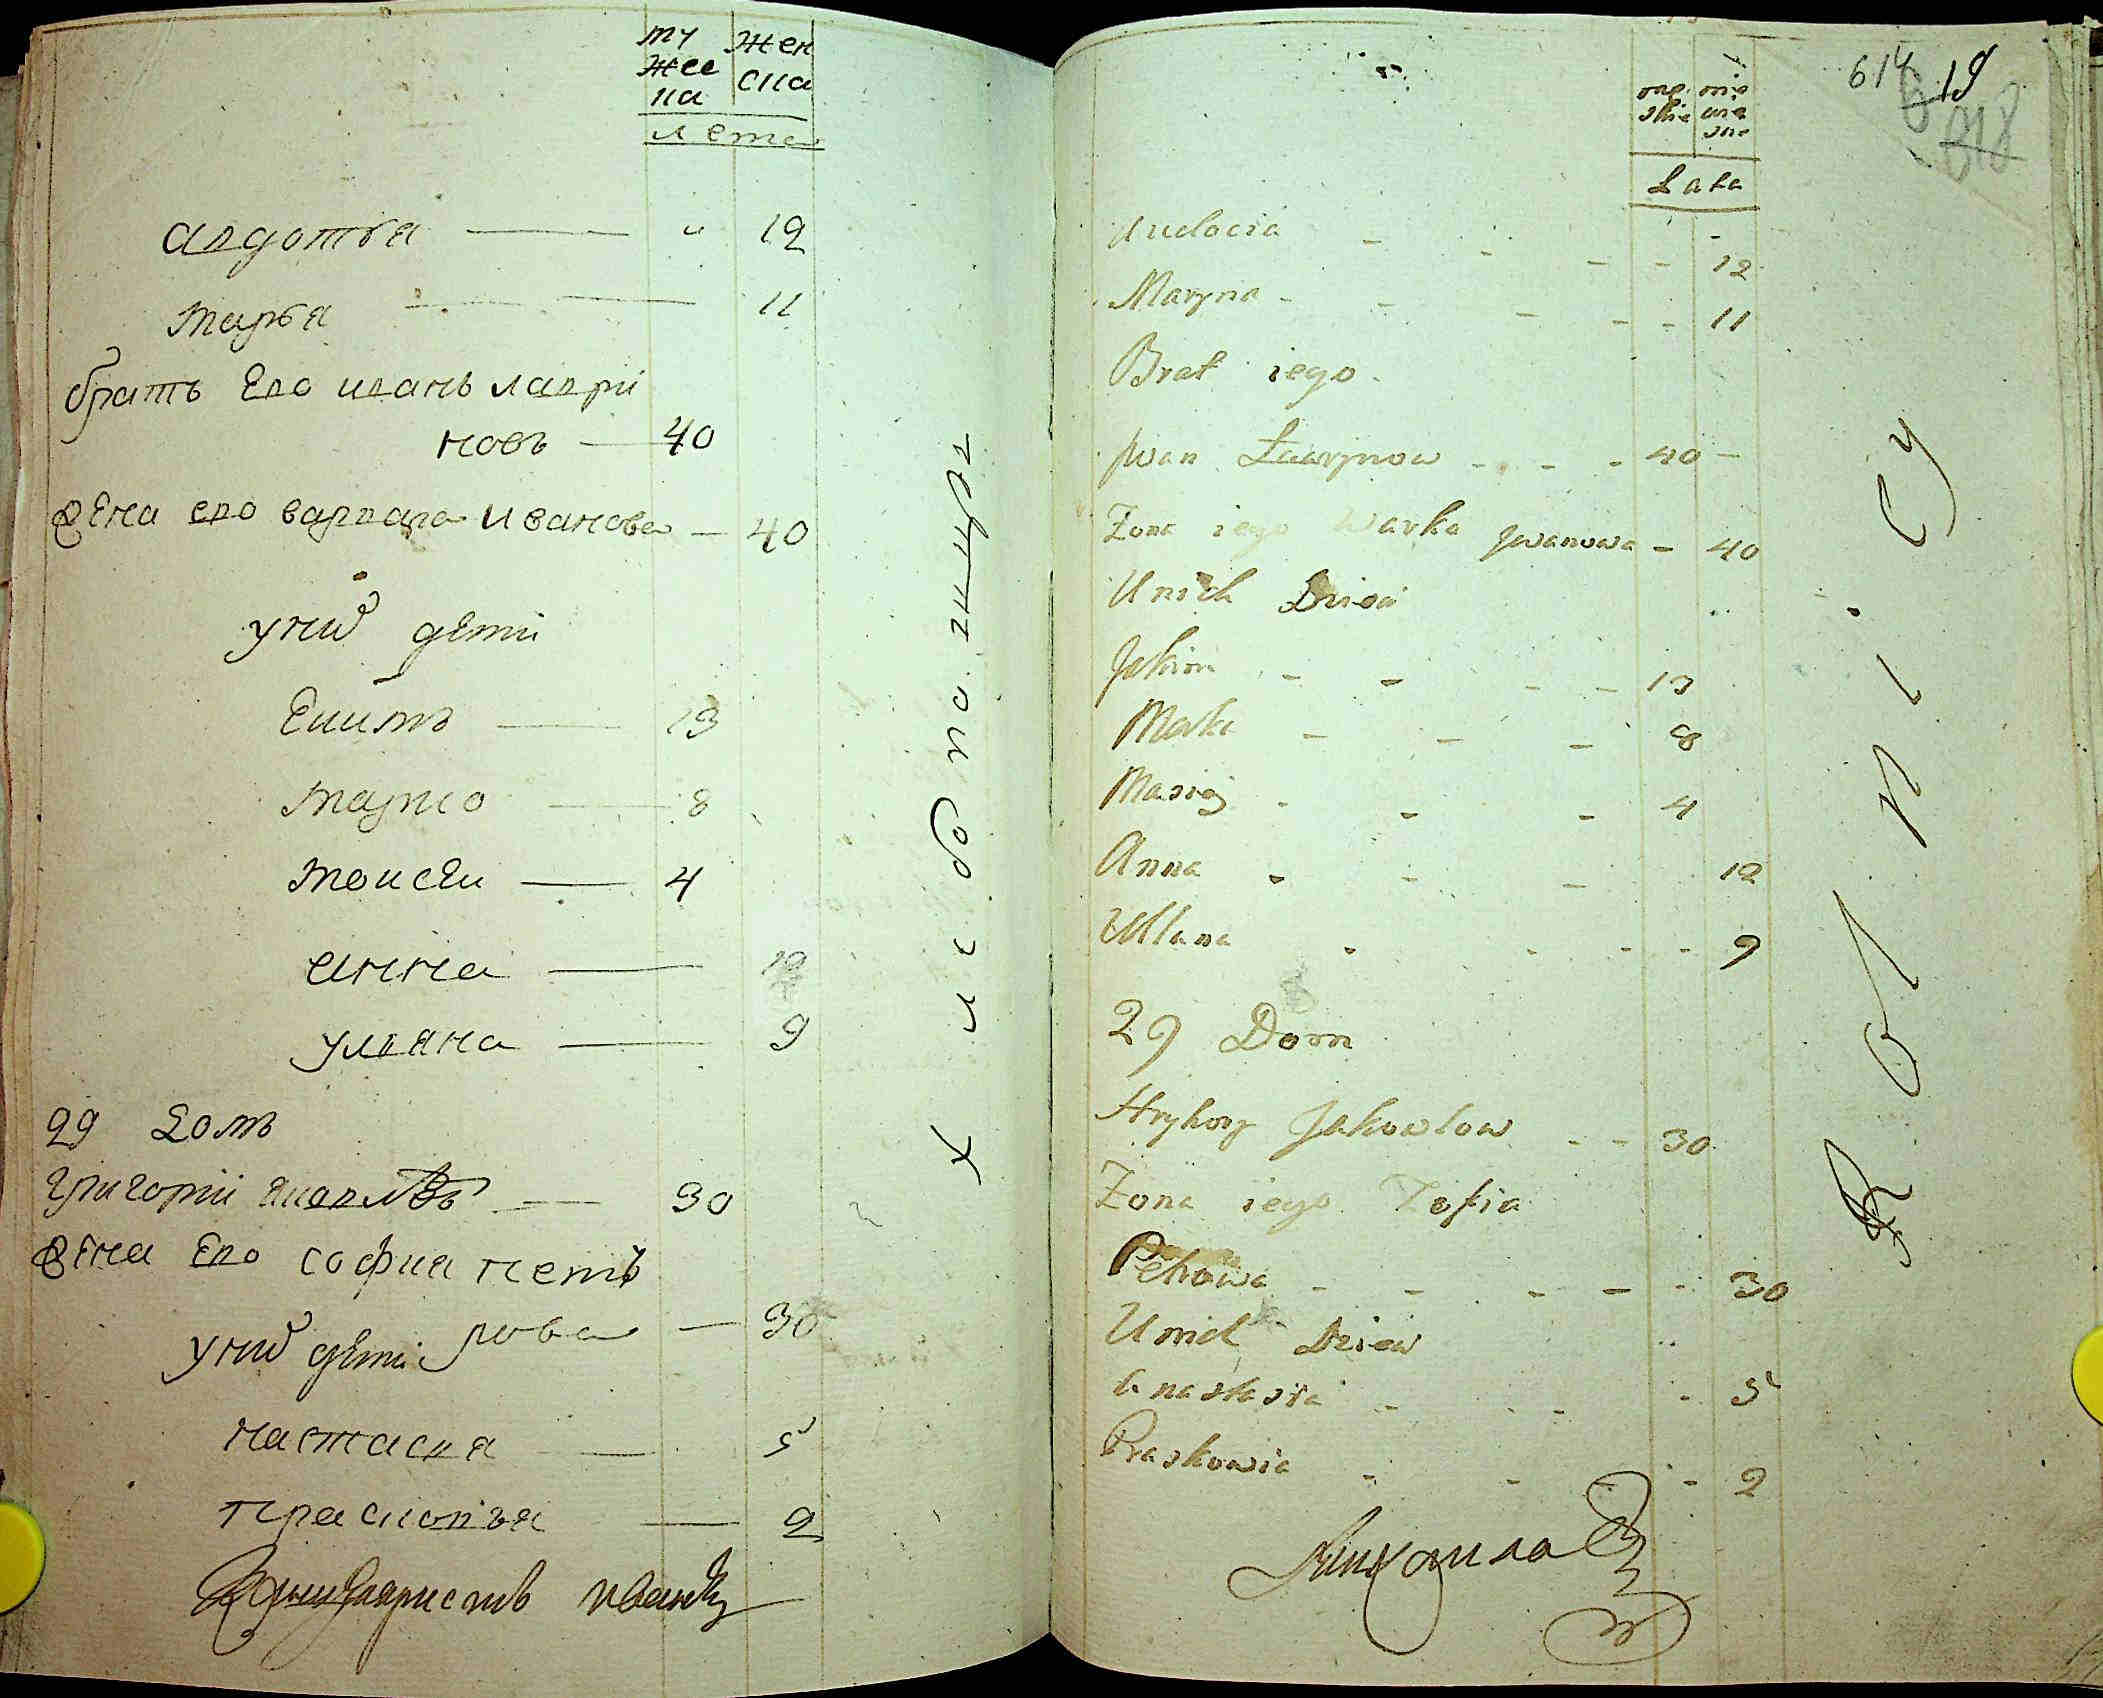 му жен
жес ска
ка
лета
авдотья — " 12
марья — 11
братъ Его иванъ лаврі
новъ — 40
жена его варвара Иванова — 40
унихъ дети
Екимъ — 13
марко — 8
моисеи — 4
анна — 12
ульяна — 9
29 Домъ
григории яковлевъ — 30
жена Его софия пет
рова — 30
унихъ дети
настасья — 5
прасковья — 2
614 19
618
Lata
Audocia - - - - 12
Maryna - - - - 11
Brat iego
Jwan Ławrynow - - - 40 -
Żona iego Warka Jwanowa - 40
Unich Dzieci
Jakim - - - - 13
Marko - - - 8
Masiej - - - 4
Anna - - - 12
Ullana - - - - 9
29 Dom
Hryhory Jakowlow - - 30
Żona iego Zofia
Petrowa - - - - - 30
Unich Dzieci
Anastasia - - - - 5
Praskowia - - - 2